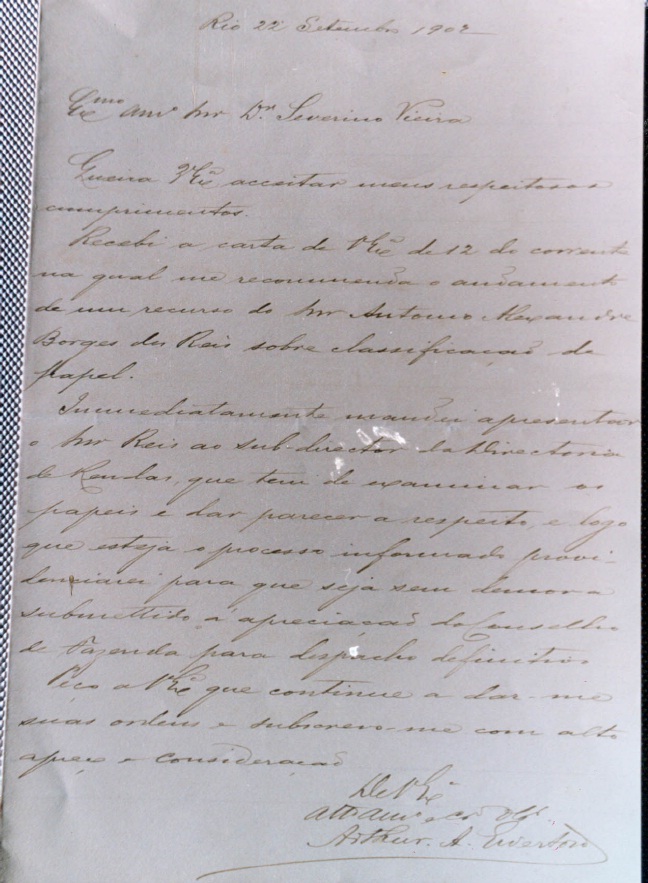 Rio 22 Setembro 1902
Exmo Amo Snr Dr. Severino Vieira
Queira VExa acceitar meus respeitosos
comprimentos.
Recebi a carta de VExa de 12 do corrente
na qual me recommenda o andamento
de um recurso do Snr Antonio Alexandre
Borges dos Reis sobre classificação de
papel.
Immediatamente mandei apresentar
o Snr Reis ao sub-director da Directoria
de Rendas, que tem de examinar os
papeis e dar parecer a respeito, e logo
que esteja o processo informado provi-
denciarei para que seja sem demora
submettido á apreciação do Conselho
de Fazenda para despacho definitivo
Peço a VExa que continue a dar-me
suas ordens e subscrevo-me com alto
apreço e consideração
De VExa
Atto Amo e Cro
Arthur. A. Ewerton